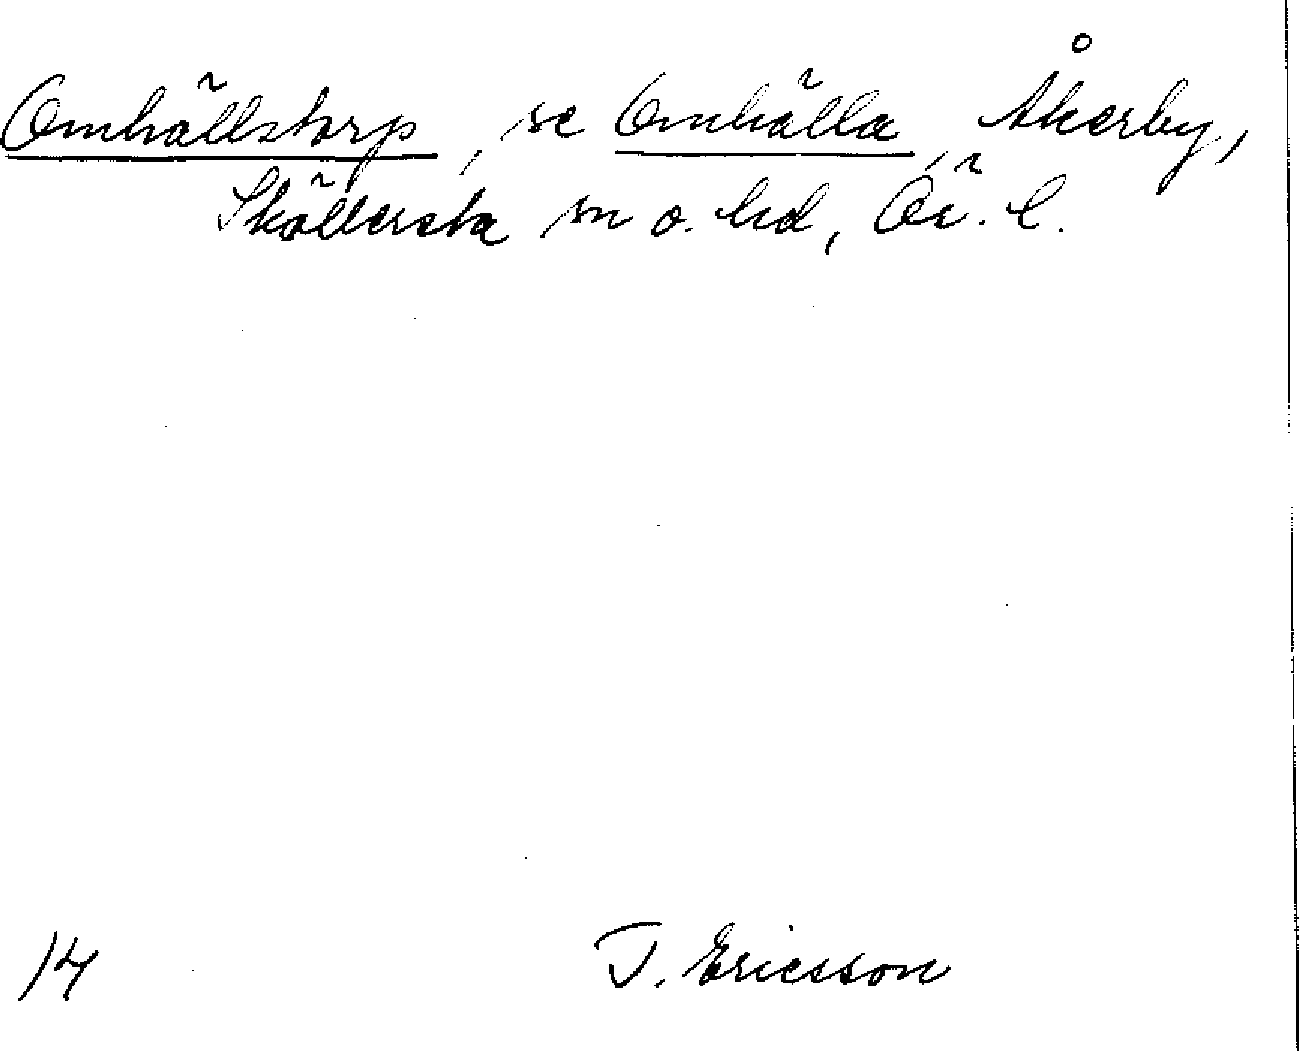 Omhällstorp, se Omhälla, Åkerby,
Sköllersta sn o. hd, Ör. l.
14 T. Ericsson